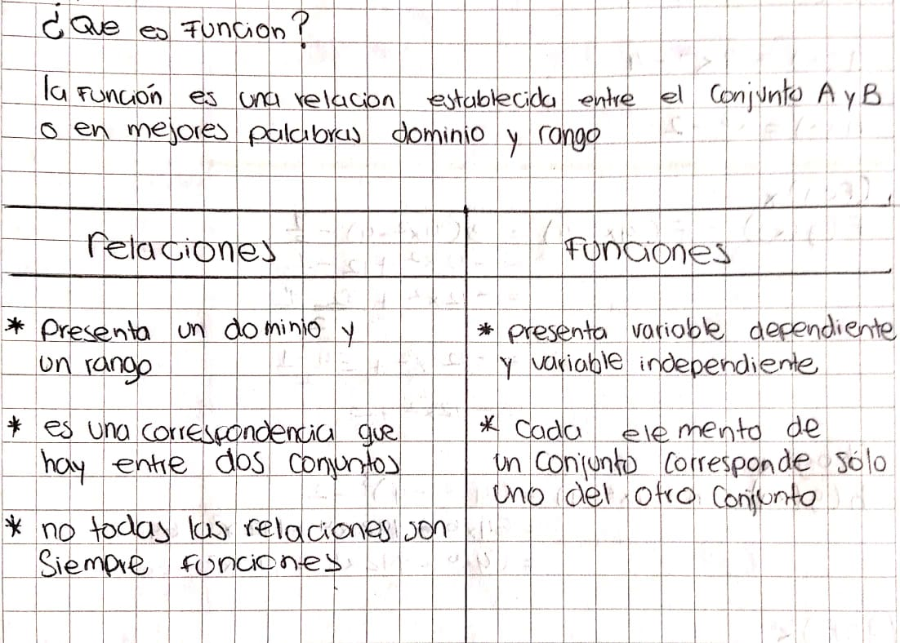 ¿Que es Funcion?
la Función es una relacion establecida entre el Conjunto A y B
o en mejores palabras dominio y rango
relaciones
Funciones
* Presenta un dominio y
un rango
* es una correspondencia que
hay entre dos conjuntos
* no todas las relaciones son
Siempre funciones
* presenta variable dependiente
y variable independiente
* Cada elemento de
un Conjunto Corresponde sólo
uno del otro Conjunto